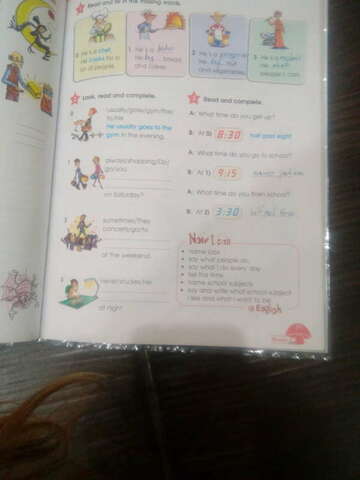 Read and fill in the missing words.
0 He's a chef.
He cooks for a lot of people.
1 He's a
He bread
and cakes.
2 He's a
He
and vegetables.
3 He's a
He
people's cars.
Look, read and complete.
0 usually/gives/gym/the/
to/He
He usually goes to the
gym in the evening.
1 always/shopping/Do/
go/you
on Saturday?
2 sometimes/they
concerts/go/to
at the weekend.
3 never/studies/He
at night.
Read and complete.
A: What time do you get up?
B: At 0) 8:30 half past eight
A: What time do you go to school?
B: At 1) 9:15
A: What time do you finish school?
B: At 2) 3:30
Now I can
• name jobs
• say what people do
• say what I do every day
• tell the time
• name school subjects
• say and write what school subject
I like and what I want to be
in English